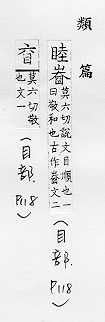 類篇
睦𥉻莫六切說文目順也一曰敬和也古作𥉻文二(目部.P118)
𥄎莫六切敬也文一(目部.P118)